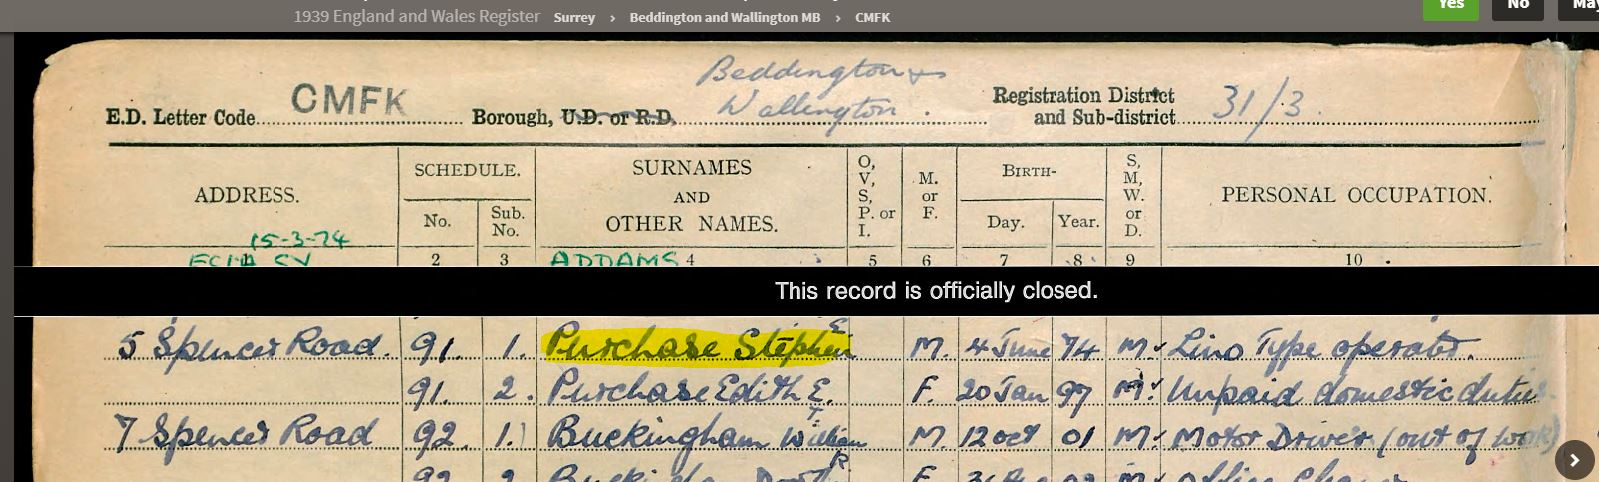 Yes No May
1939 England and Wales Register Surrey > Beddington and Wallington MB > CMFK
Beddington &
E.D. Letter Code CMFK Borough, U.D. or R.D. Wallington. Registration District and Sub-district 31/3.
ADDRESS. SCHEDULE. SURNAMES AND OTHER NAMES. O, V, S, P. or I. M. or F. BIRTH- S, M, W. or D. PERSONAL OCCUPATION.
No. Sub. No. Day. Year.
15-3-74
2 3 ADDAMS 4 5 6 7 8 9 10
This record is officially closed.
5 Spencer Road. 91. 1. Purchase Stephen E M. 4 June 74 M. Lino Type operator.
91. 2. Purchase Edith E. F. 20 Jan 97 M. Unpaid domestic duties
7 Spencer Road 92. 1. Buckingham William T. M. 12 Oct 01 M. Motor Driver (out of work)
92 2 R F.